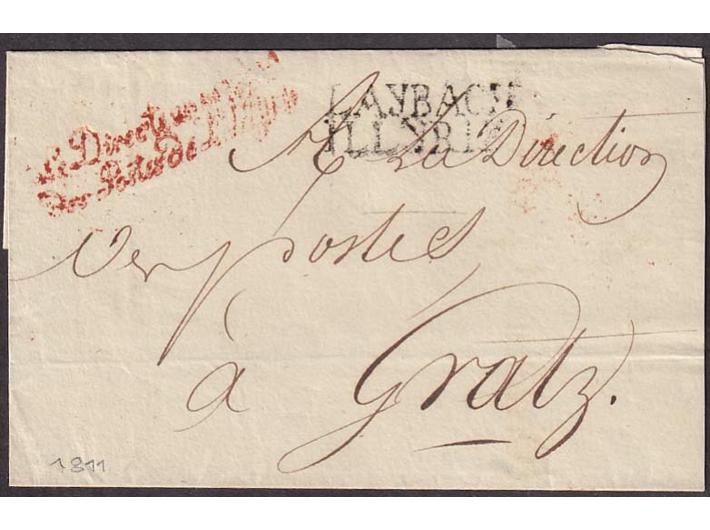 Le Directeur
Des Postes de l'Illyrie
LAYBACH
ILLYRIE
A La Direction
Des postes
à Gratz.
1811